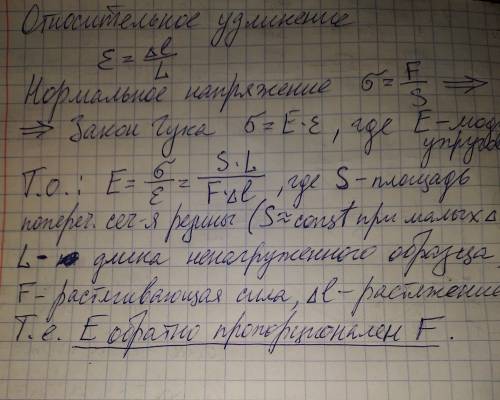 Относительное удлинение
ε = Δl/L
Нормальное напряжение σ = F/S ⟹
⟹ Закон Гука σ = E·ε, где E – мод
упруго
Т.о.: E = σ/ε = S·L/F·Δl, где S – площадь
попереч. сеч-я резины (S ≈ const при малых Δ
L – длина ненагруженного образца
F – растягивающая сила, Δl – растяжение
Т.е. E обратно пропорционален F.